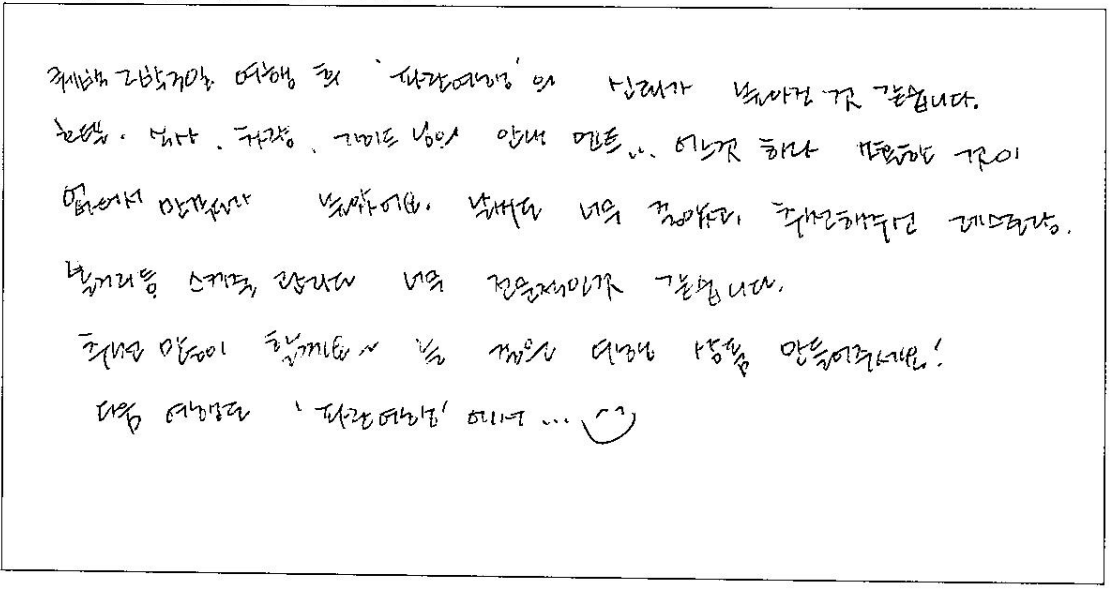 여행 후 '파란여행'의 신뢰가 높아진 것 같습니다.
호텔, 식사, 차량, 가이드님의 안내 멘트... 어느것 하나 소홀한 것이
없어서 만족도가 높았어요. 날씨도 너무 좋았고, 추천해주신 레스토랑,
볼거리등 스케줄 관리도 너무 전문적인것 같습니다.
추천 많이 할게요~ 늘 좋은 여행 상품 만들어주세요!
다음 여행도 '파란여행' 에서...